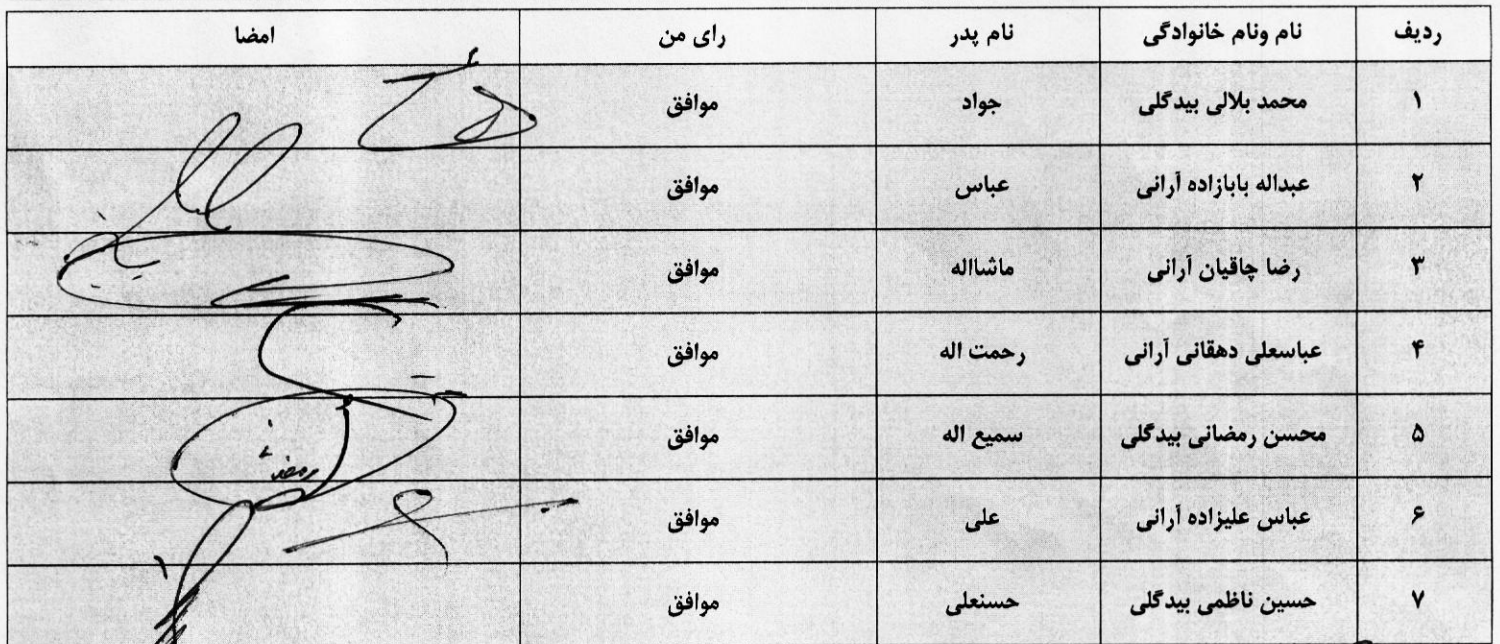 ردیف نام ونام خانوادگی نام پدر رای من امضا
۱ محمد بلالی بیدگلی جواد موافق
۲ عبداله بابازاده آرانی عباس موافق
۳ رضا چاقیان آرانی ماشااله موافق
۴ عباسعلی دهقانی آرانی رحمت اله موافق
۵ محسن رمضانی بیدگلی سمیع اله موافق
۶ عباس علیزاده آرانی علی موافق
۷ حسین ناظمی بیدگلی حسنعلی موافق